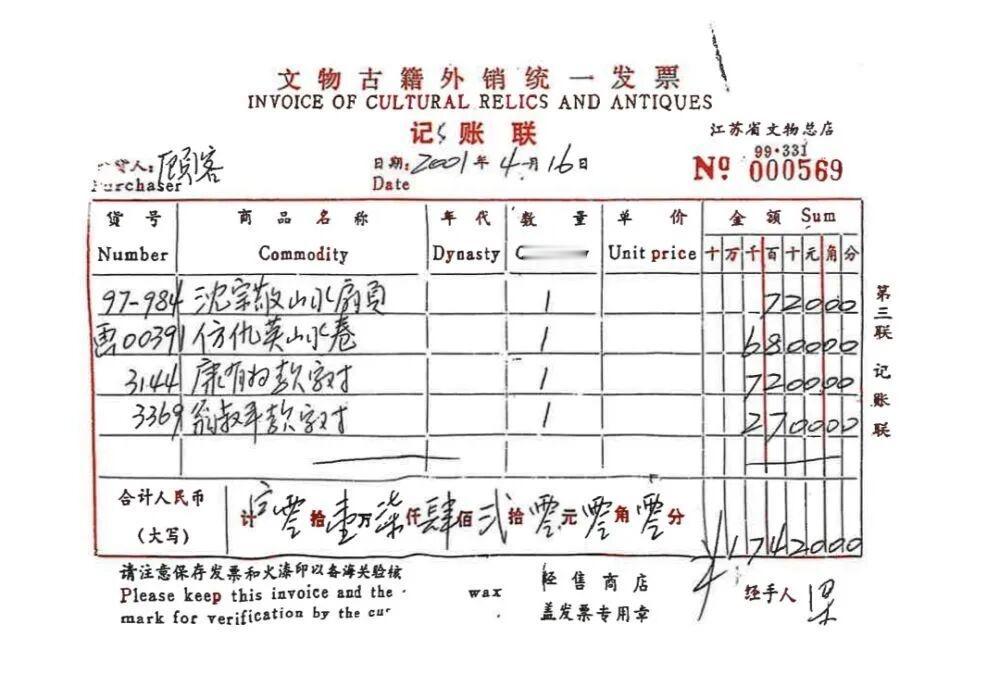 文物古籍外销统一发票
INVOICE OF CULTURAL RELICS AND ANTIQUES
记账联
江苏省文物总店
99·331
货人: 顾客 日期: 2001年4月16日 Nº 000569
Purchaser Date
货号 商品名称 年代 数量 单价 金额 Sum
Number Commodity Dynasty Unit price 十万千百十元角分
97-984 沈宗敬山水扇页 1 72000
画00391 仿仇英山水卷 1 680000
3144 康有为款字对 1 720000
3369 翁叔平款字对 1 270000
合计人民币
(大写) 计零拾壹万柒仟肆佰贰拾零元零角零分 ¥1742000
第三联 记账联
请注意保存发票和火漆印以备海关验核 经售商店 经手人
Please keep this invoice and the wax 盖发票专用章
mark for verification by the